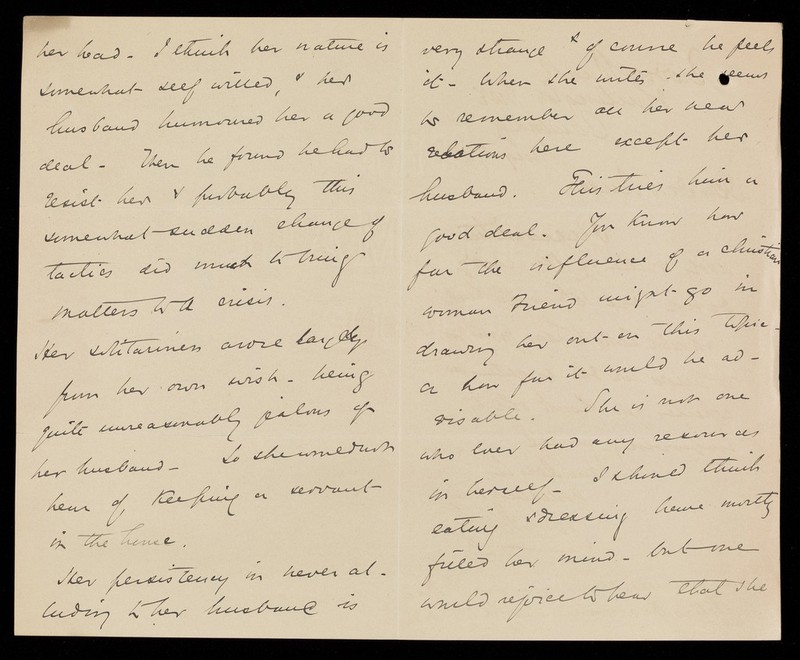 her head - I think her nature is
somewhat self willed, & her
husband humoured her a good
deal - Then he found he had to
resist her & probably this
somewhat sudden change of
tactics did much to bring
matters to a crisis.
Her solitariness arose largely
from her own wish - being
quite unreasonably jealous of
her husband - So she would not
hear of keeping a servant
in the house.
Her persistency in never al-
luding to her husband is
very strange & of course he feels
it - When she writes - she seems
to remember all her near
relations here except her
husband. This tries him a
good deal. You know how
far the influence of a christian
woman Friend might go in
drawing her out on this topic -
or how far it would be ad-
visable. She is not one
who ever had any resources
in herself - I should think
eating & dressing have mostly
filled her mind - but one
would rejoice to hear that she